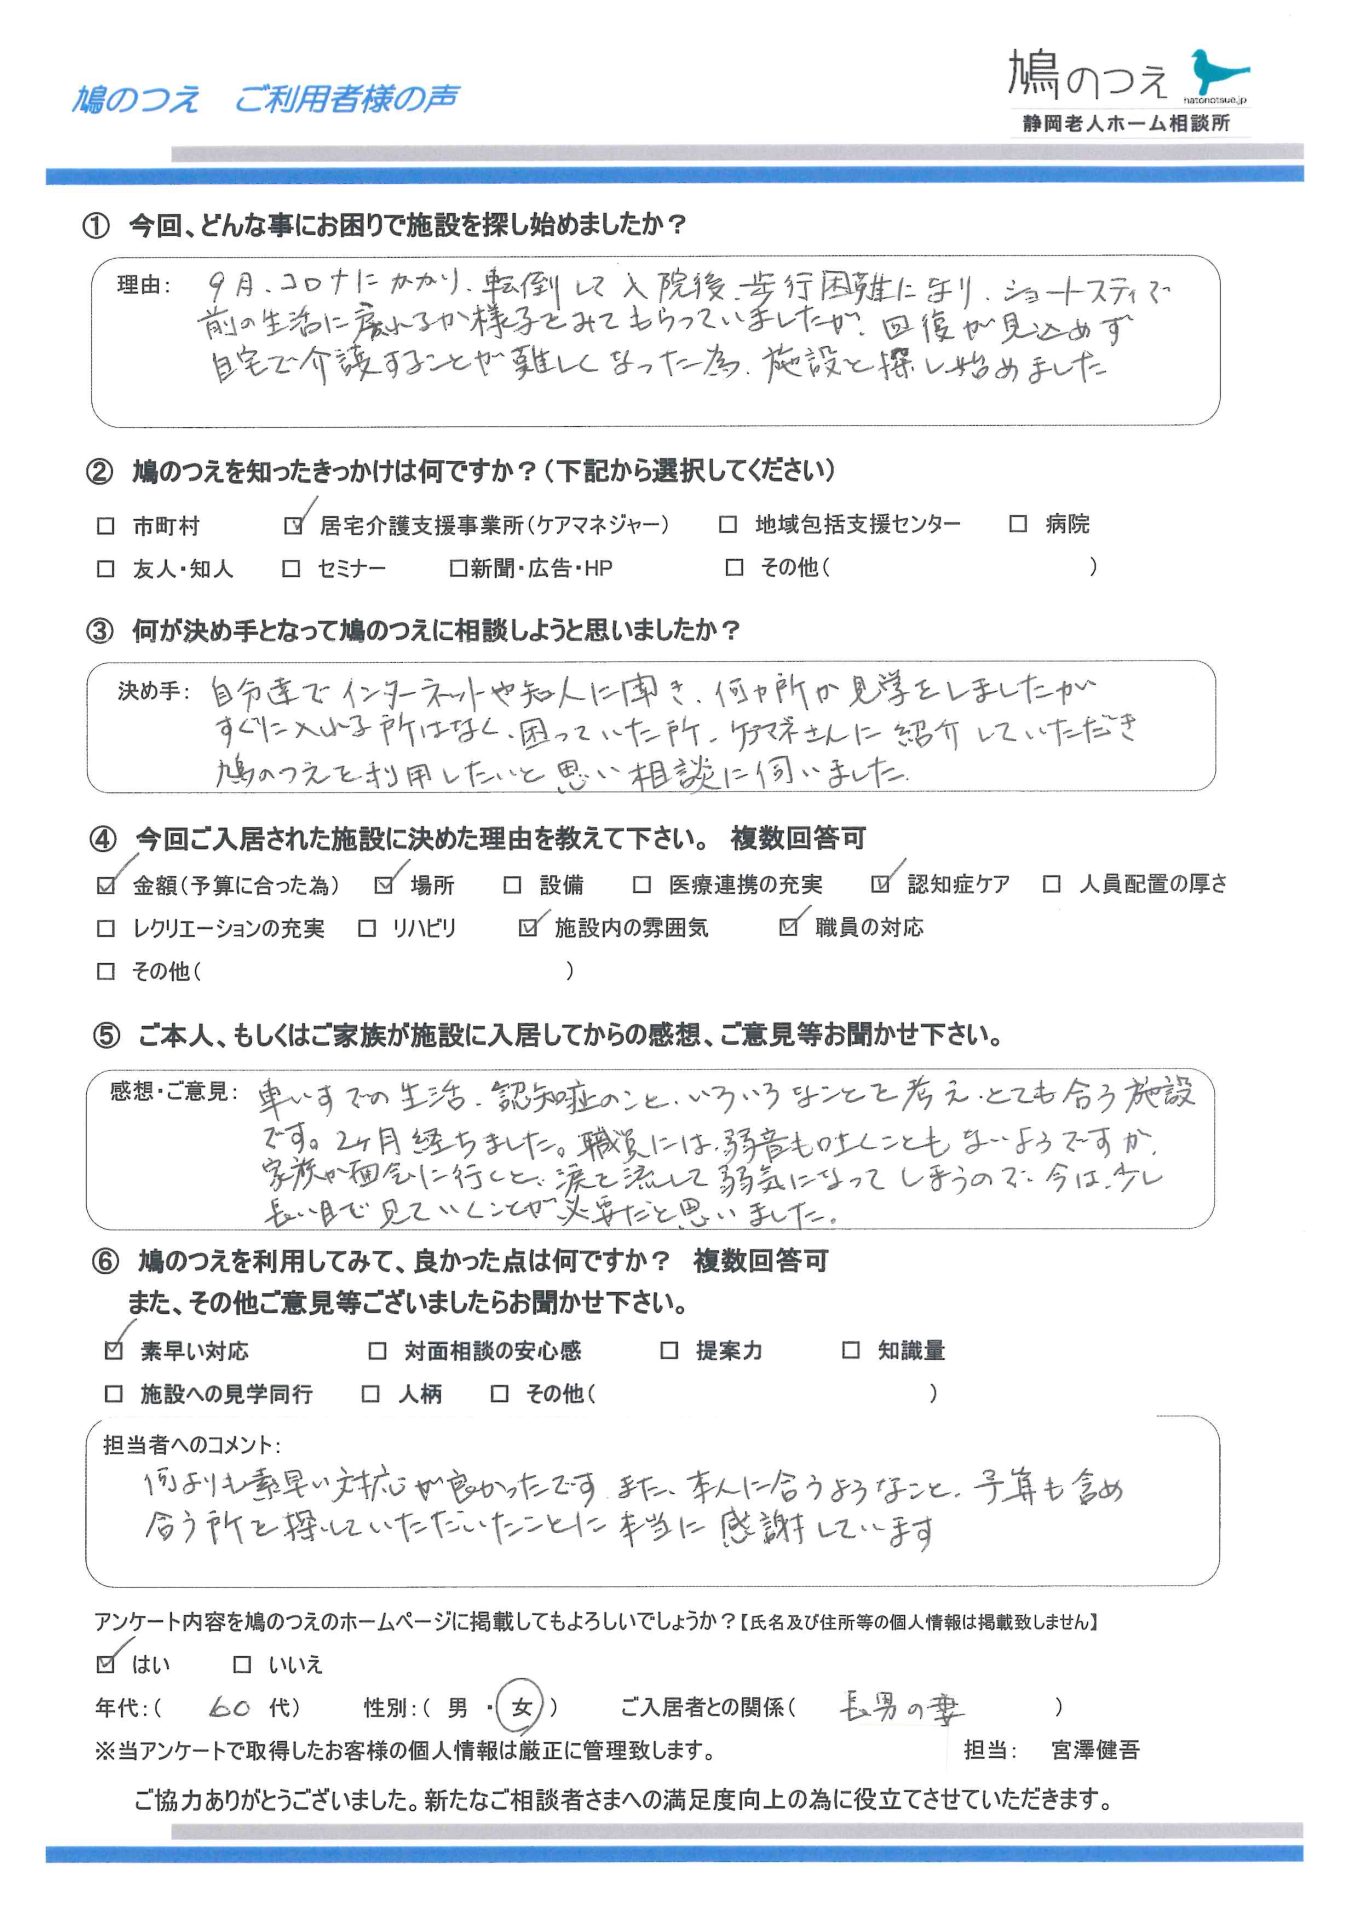 鳩のつえ　ご利用者様の声
鳩のつえ
hatonotsue.jp
静岡老人ホーム相談所
① 今回、どんな事にお困りで施設を探し始めましたか？
理由： 9月、コロナにかかり、転倒して入院後、歩行困難になり、ショートスティで
前の生活に戻れるか様子をみてもらっていましたが、回復が見込めず
自宅で介護することが難しくなった為、施設を探し始めました
② 鳩のつえを知ったきっかけは何ですか？（下記から選択してください）
□ 市町村　☑ 居宅介護支援事業所（ケアマネジャー）　□ 地域包括支援センター　□ 病院
□ 友人・知人　□ セミナー　□新聞・広告・HP　□ その他（　　　）
③ 何が決め手となって鳩のつえに相談しようと思いましたか？
決め手： 自分達でインターネットや知人に聞き、何ヵ所か見学をしましたが
すぐに入れる所はなく、困っていた所、ケアマネさんに紹介していただき
鳩のつえを利用したいと思い相談に伺いました。
④ 今回ご入居された施設に決めた理由を教えて下さい。　複数回答可
☑ 金額（予算に合った為）　☑ 場所　□ 設備　□ 医療連携の充実　☑ 認知症ケア　□ 人員配置の厚さ
□ レクリエーションの充実　□ リハビリ　☑ 施設内の雰囲気　☑ 職員の対応
□ その他（　　　）
⑤ ご本人、もしくはご家族が施設に入居してからの感想、ご意見等お聞かせ下さい。
感想・ご意見： 車いすでの生活、認知症のこと、いろいろなことを考え、とても合う施設
です。2ヶ月経ちました。職員には、弱音も吐くこともないようですが、
家族が面会に行くと、涙を流して弱気になってしまうので、今は、少し
長い目で見ていくことが必要だと思いました。
⑥ 鳩のつえを利用してみて、良かった点は何ですか？　複数回答可
また、その他ご意見等ございましたらお聞かせ下さい。
☑ 素早い対応　□ 対面相談の安心感　□ 提案力　□ 知識量
□ 施設への見学同行　□ 人柄　□ その他（　　　）
担当者へのコメント：
何よりも素早い対応が良かったです。また、本人に合うようなこと、予算も含め
合う所を探していただいたことに本当に感謝しています
アンケート内容を鳩のつえのホームページに掲載してもよろしいでしょうか？【氏名及び住所等の個人情報は掲載致しません】
☑ はい　□ いいえ
年代：（　60 代）　性別：（ 男 ・ 女 ）　ご入居者との関係（　長男の妻　）
※当アンケートで取得したお客様の個人情報は厳正に管理致します。　担当：　宮澤健吾
ご協力ありがとうございました。新たなご相談者さまへの満足度向上の為に役立てさせていただきます。